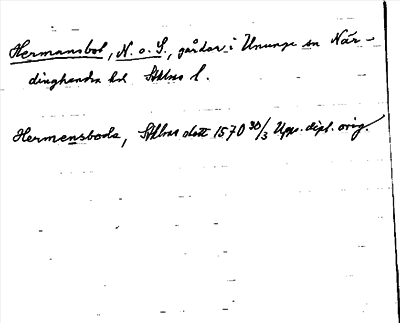 Hermansbol, N. o. S., gårdar i Ununge sn När-
dinghundra hd Sthlms l.
Hermensbode, Sthlms dott 1570 30/3 Upps. dipl. orig.